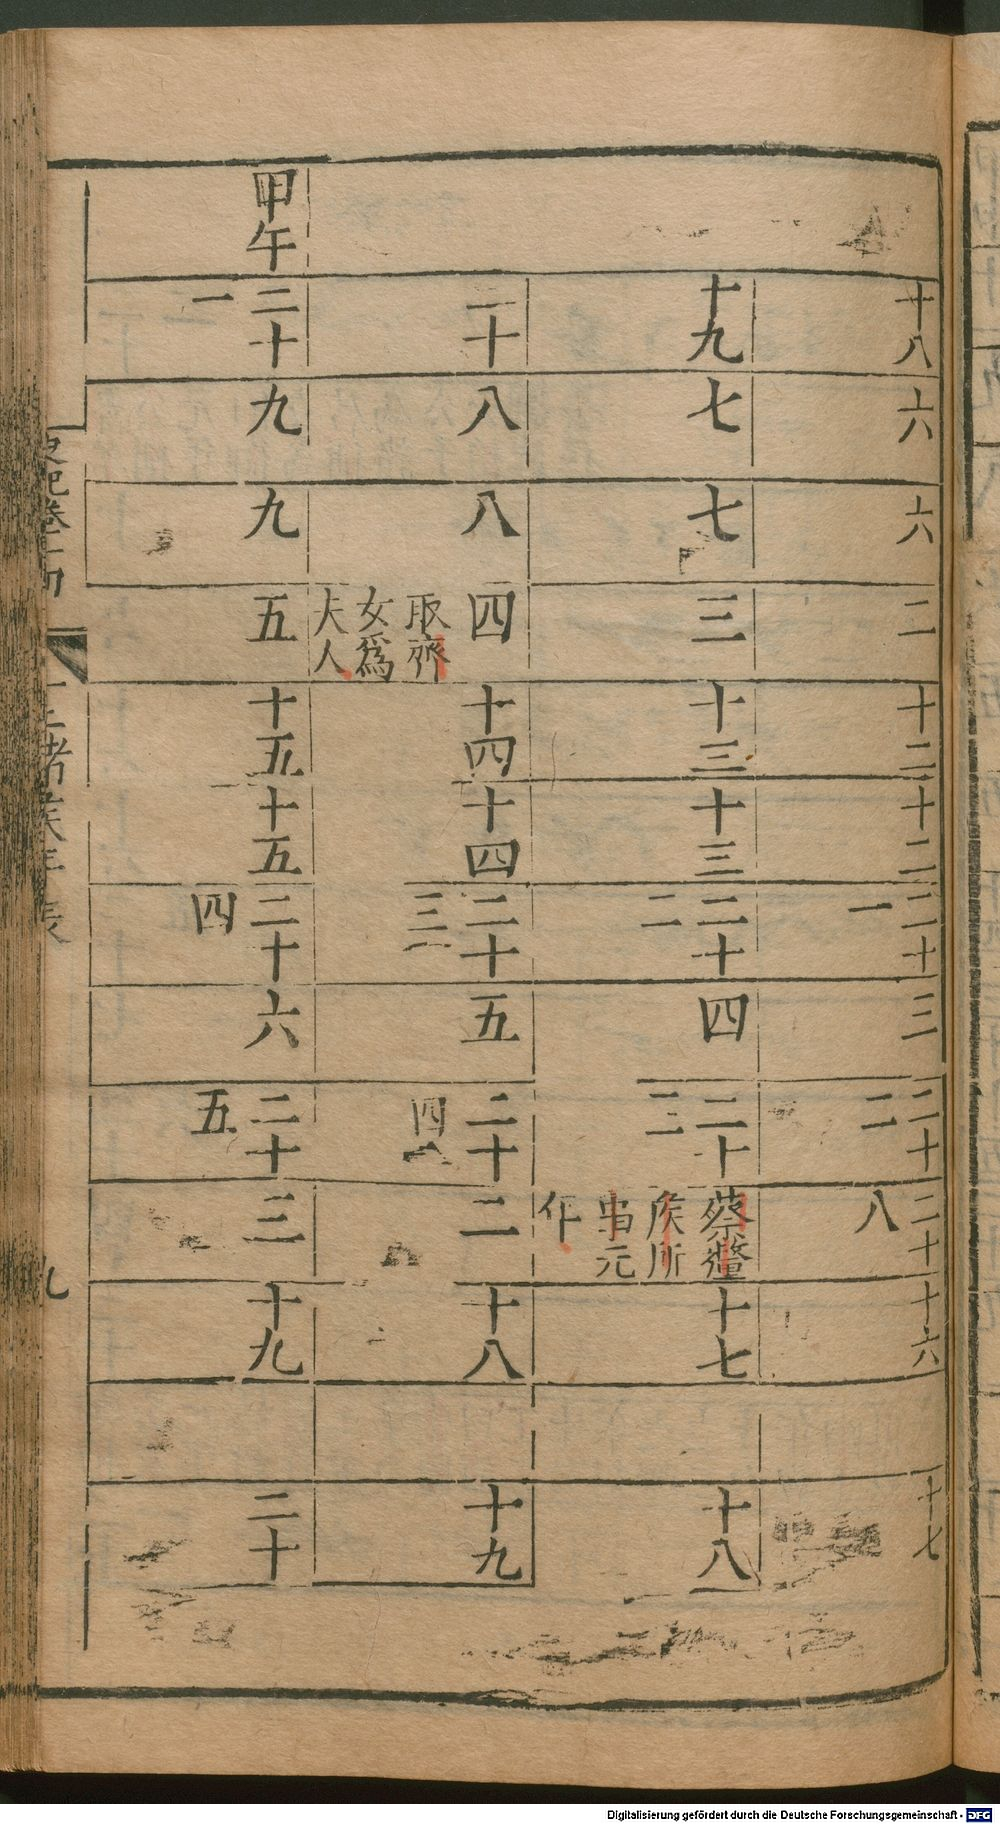 十八
六
六
二
十二
十二
二十
一
三
二十
二
二十
八
十六
十七
十九
七
七
三
十三
十三
二十
二
四
二十
三
蔡釐
侯所
事元
年
十七
十八
二十
八
八
四
取齊
女爲
夫人
十四
十四
二十
三
五
二十
四
二
十八
十九
甲午
二十
一
九
九
五
十五
十五
二十
四
六
二十
五
三
十九
二十
史記卷十四
十二諸侯年表
九
Digitalisierung gefördert durch die Deutsche Forschungsgemeinschaft - DFG